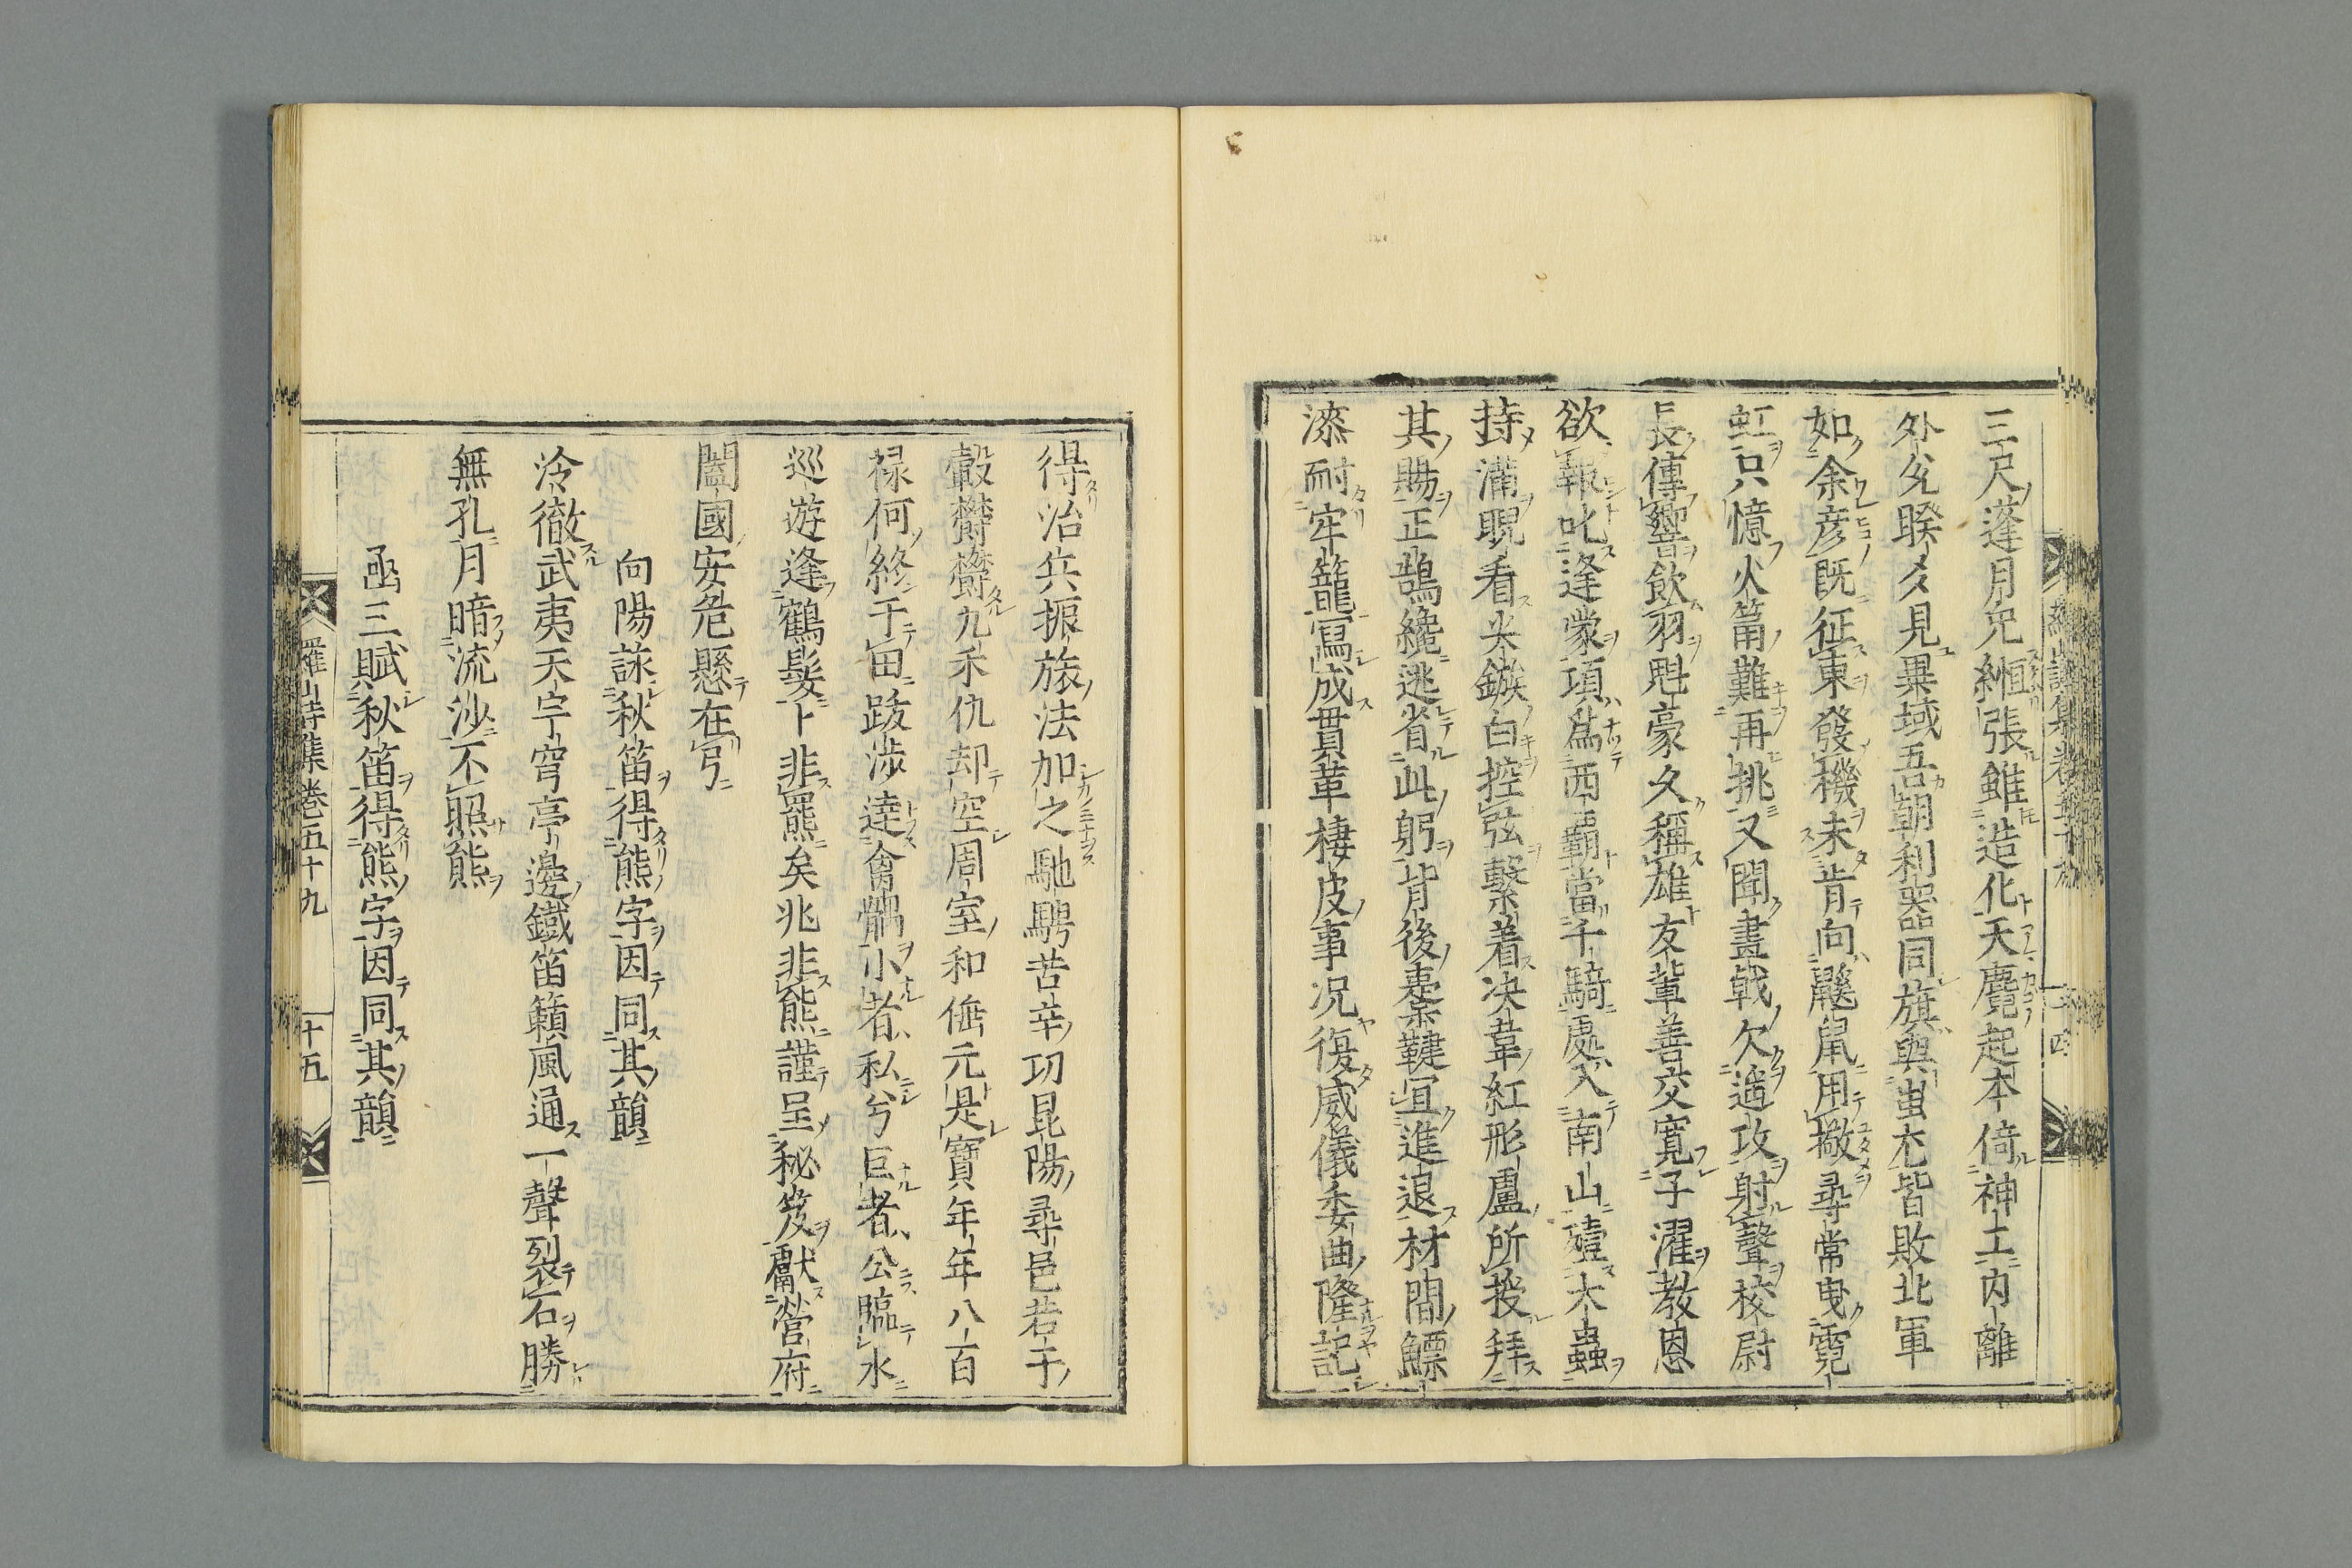 三尺蓬月兒絙張雖造化天麑起本倚神工内離
外爻睽爻見異域吾朝利器同旗與蚩尤皆敗北軍
如余彥既征東發機未肯向鼷鼠用擬尋常曳霓
虹只憶火箭難再挑又聞畫戟欠遄攻射聲校尉
長傳響飮羽魁豪久稱雄友輩善交寛子濯教恩
欲報叱逢蒙項爲西覇當千騎處入南山殪大蟲
持滿睍看光鏃白控弦繫着决韋紅形盧所授拜
其賜正鵠纔逃省此躬背後櫜鞬宜進退材間鰾
漆耐牢籠寫成貫革棲皮事况復威儀委曲隆記
羅山詩集卷五十九 十四
得治兵振旅法加之馳騁苦辛功昆陽尋邑若干
轂欝欝九禾仇却空周室和倕元是寶年年八百
祿何終于田跋渉達禽鷸小者私兮巨者公臨水
巡遊逢鶴髮卜非羆矣兆非熊謹呈秘笈獻營府
闔國安危懸在弓
向陽詠秋笛得熊字因同其韻
泠徹武夷天宇穹亭邊鐵笛籟風通一聲裂石勝
無孔月暗流沙不照熊
函三賦秋笛得熊字因同其韻
羅山詩集卷五十九 十五